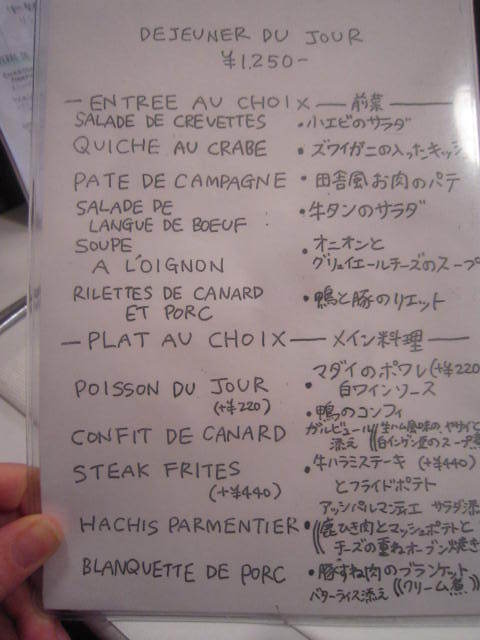 DEJEUNER DU JOUR
¥1.250-
— ENTREE AU CHOIX — 前菜
SALADE DE CREVETTES ・小エビのサラダ
QUICHE AU CRABE ・ズワイガニの入ったキッシュ
PATE DE CAMPAGNE ・田舎風お肉のパテ
SALADE DE
LANGUE DE BOEUF ・牛タンのサラダ
SOUPE ・オニオンと
A L'OIGNON グリュイエールチーズのスープ
RILETTES DE CANARD ・鴨と豚のリエット
ET PORC
— PLAT AU CHOIX — メイン料理 —
マダイのポワレ(+¥220
POISSON DU JOUR ・白ワインソース
(+¥220) ・鴨のコンフィ
CONFIT DE CANARD ガルビュール添え((生ハム風味のヤサイと
白インゲン豆のスープ煮
STEAK FRITES ・牛ハラミステーキ (+¥440)
(+¥440) とフライドポテト
アッシパルマンティエ サラダ添
HACHIS PARMENTIER ・((鹿ひき肉とマッシュポテトと
チーズの重ねオーブン焼き
BLANQUETTE DE PORC ・豚すね肉のブランケット
バターライス添え((クリーム煮))